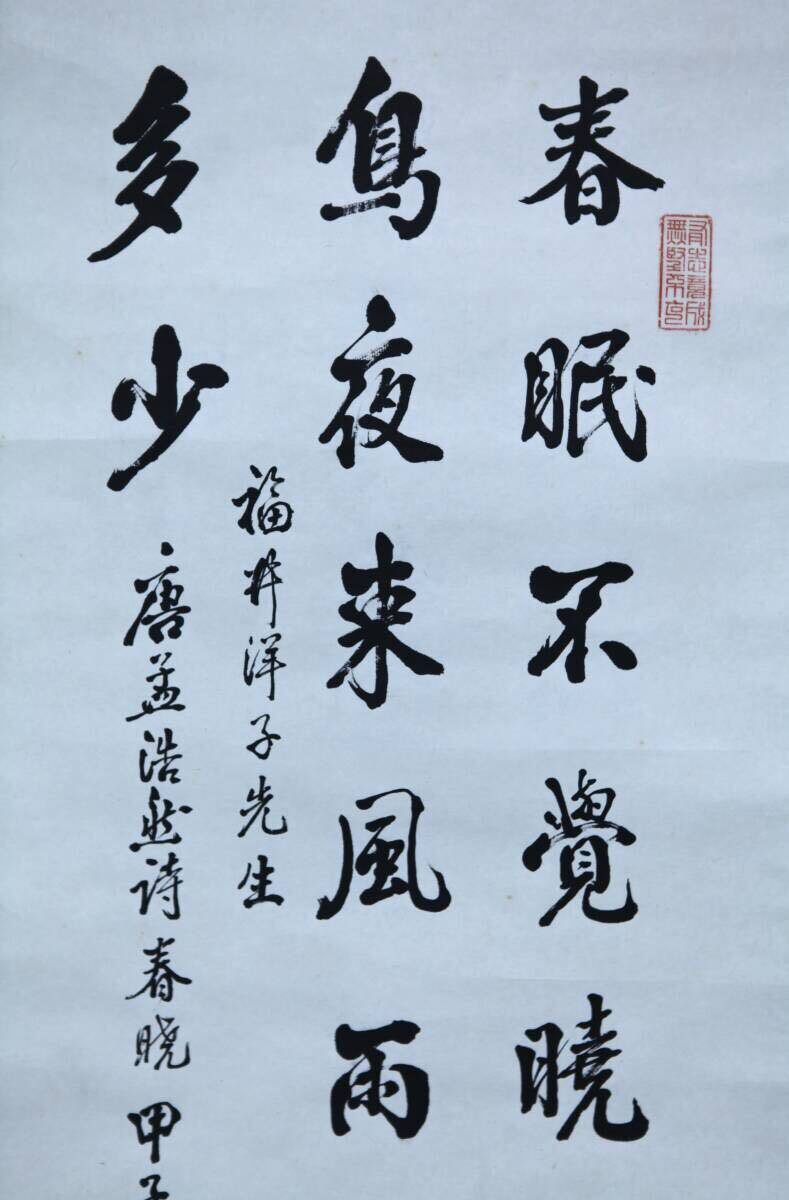 春眠不覺曉
鳥夜来風雨
多少
福井洋子先生
唐孟浩然诗春晓甲子